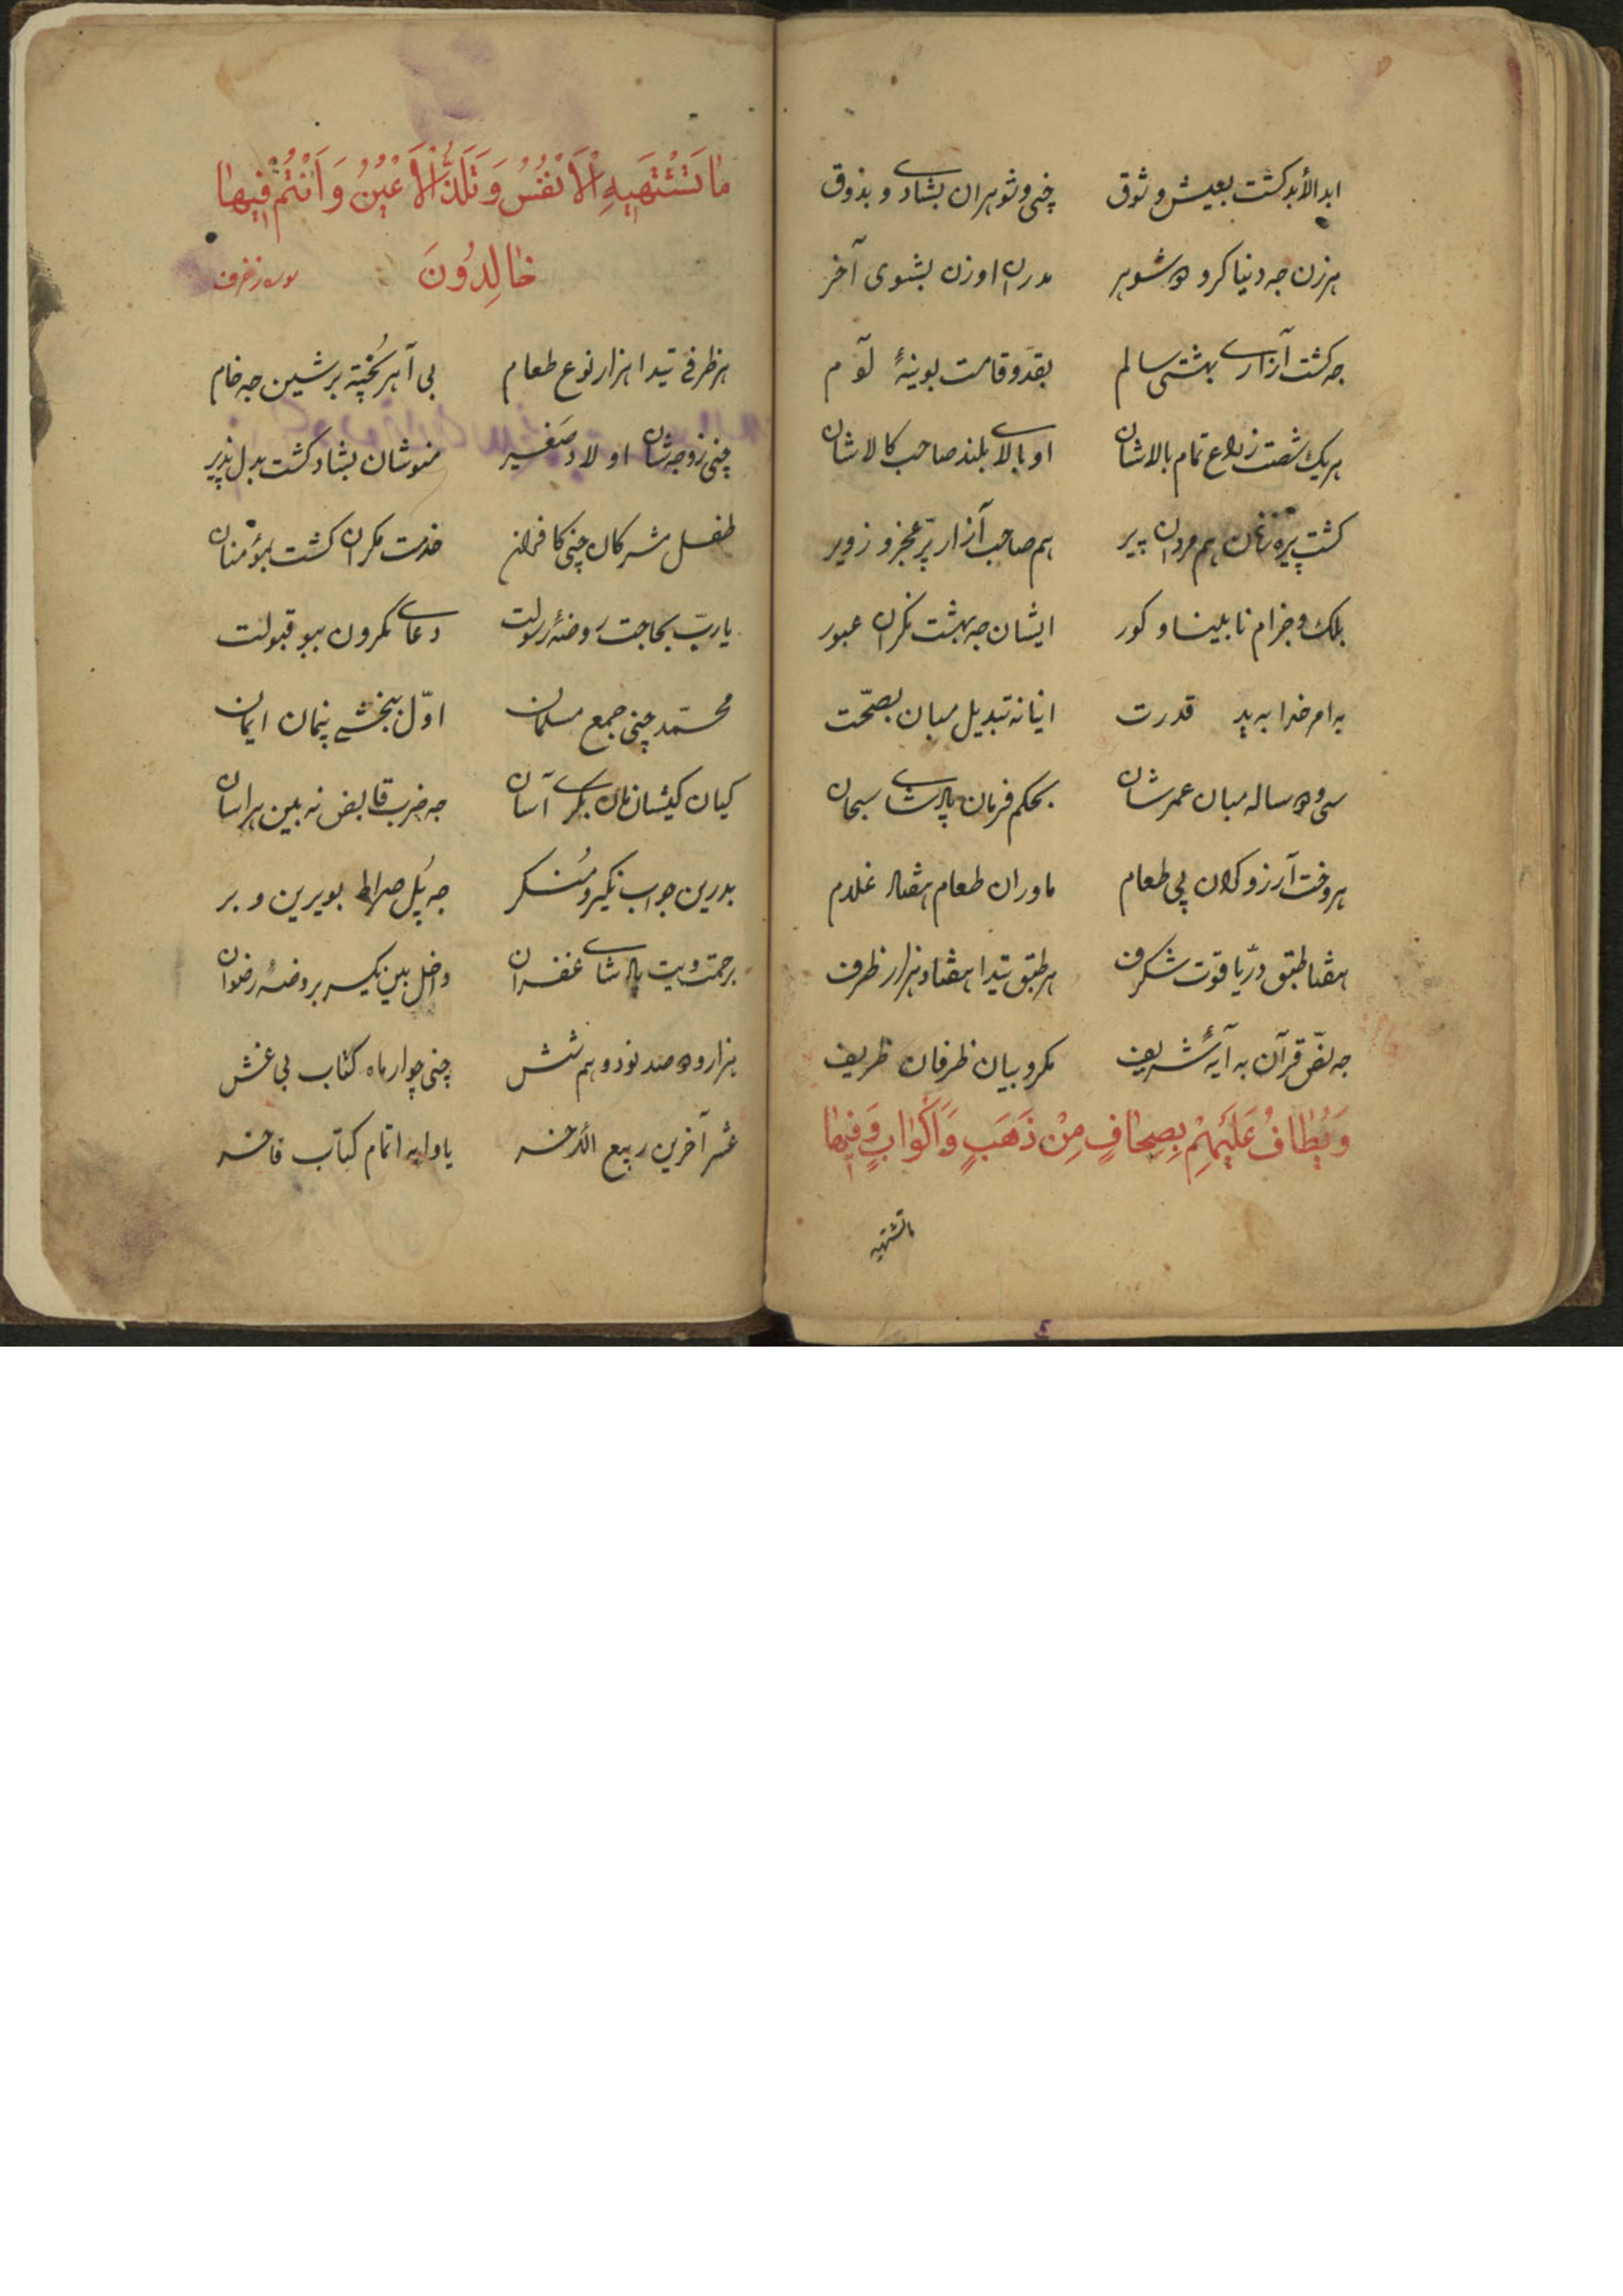 ابد الأبد کشت بعیش و ثوق چنی وشوهران بشادی و بذوق
هرزن جه دنیا کرو دو شوهر مدران اوزن بشوی آخر
جه کشت آزاری بهشتی سالم بقد و قامت بوینهٔ لوآم
هریک شصت زراع تمام بالاشان او بالای بلند صاحب کالاشان
کشت پیره زنان هم مردان پیر هم صاحب آزار پر عجز و زویر
بلک و جزام نابلینا و کور ایشان جه بهشت نکران عبور
به امر خدا به ید قدرت ایانانه تبدیل مبان بصحّت
سی و دو ساله مبان عمرشان بحکم فرمان پادشای سبحان
هر وخت آرزو کران پی طعام ماوران طعام هفتاد غلام
هفتا طبق درّ یاقوت شکرف هر طبق تیدا هفتاد هزار ظرف
جه نصّ قرآن به آیهٔ شریف مکرو بیان ظرفان ظریف
وَيُطَافُ عَلَيْهِمْ بِصِحَافٍ مِنْ ذَهَبٍ وَأَكْوَابٍ وَفِيهَا
ماتشتهیه
مَا تَشْتَهِيهِ الْأَنْفُسُ وَتَلَذُّ الْأَعْيُنُ وَأَنْتُمْ فِيهَا
خَالِدُونَ سوره زخرف
هر ظرفی تیدا هزار نوع طعام بی آهر پُخته بر شین جه خام
چنی زوجه شان اولاد صَغیر منوشان بشاد کشت بدل پذیر
طفل مشرکان چنی کافران خدمت مکران کشت بمؤمنان
یا ربّ بحاجت روضهٔ رسولت دعای مکرون ببو قبولت
محمّد چنی جمع مسلمان اوّل ببخشی پنمان ایمان
کیان کیشانمان بکری آسان جه ضرب قابض نه بین هراسان
بدرین جواب نکیر و مُنکر جه پُل صراط بویرین و بر
برحمت ویت پادشای غفران داخل بین یکسر بروضهٔ رضوان
هزار و دو صد نود و هم شش چنی چوار ماه کتاب بی غش
عشر آخرین ربیع الآخر یاوا به اتمام کتاب فاخر